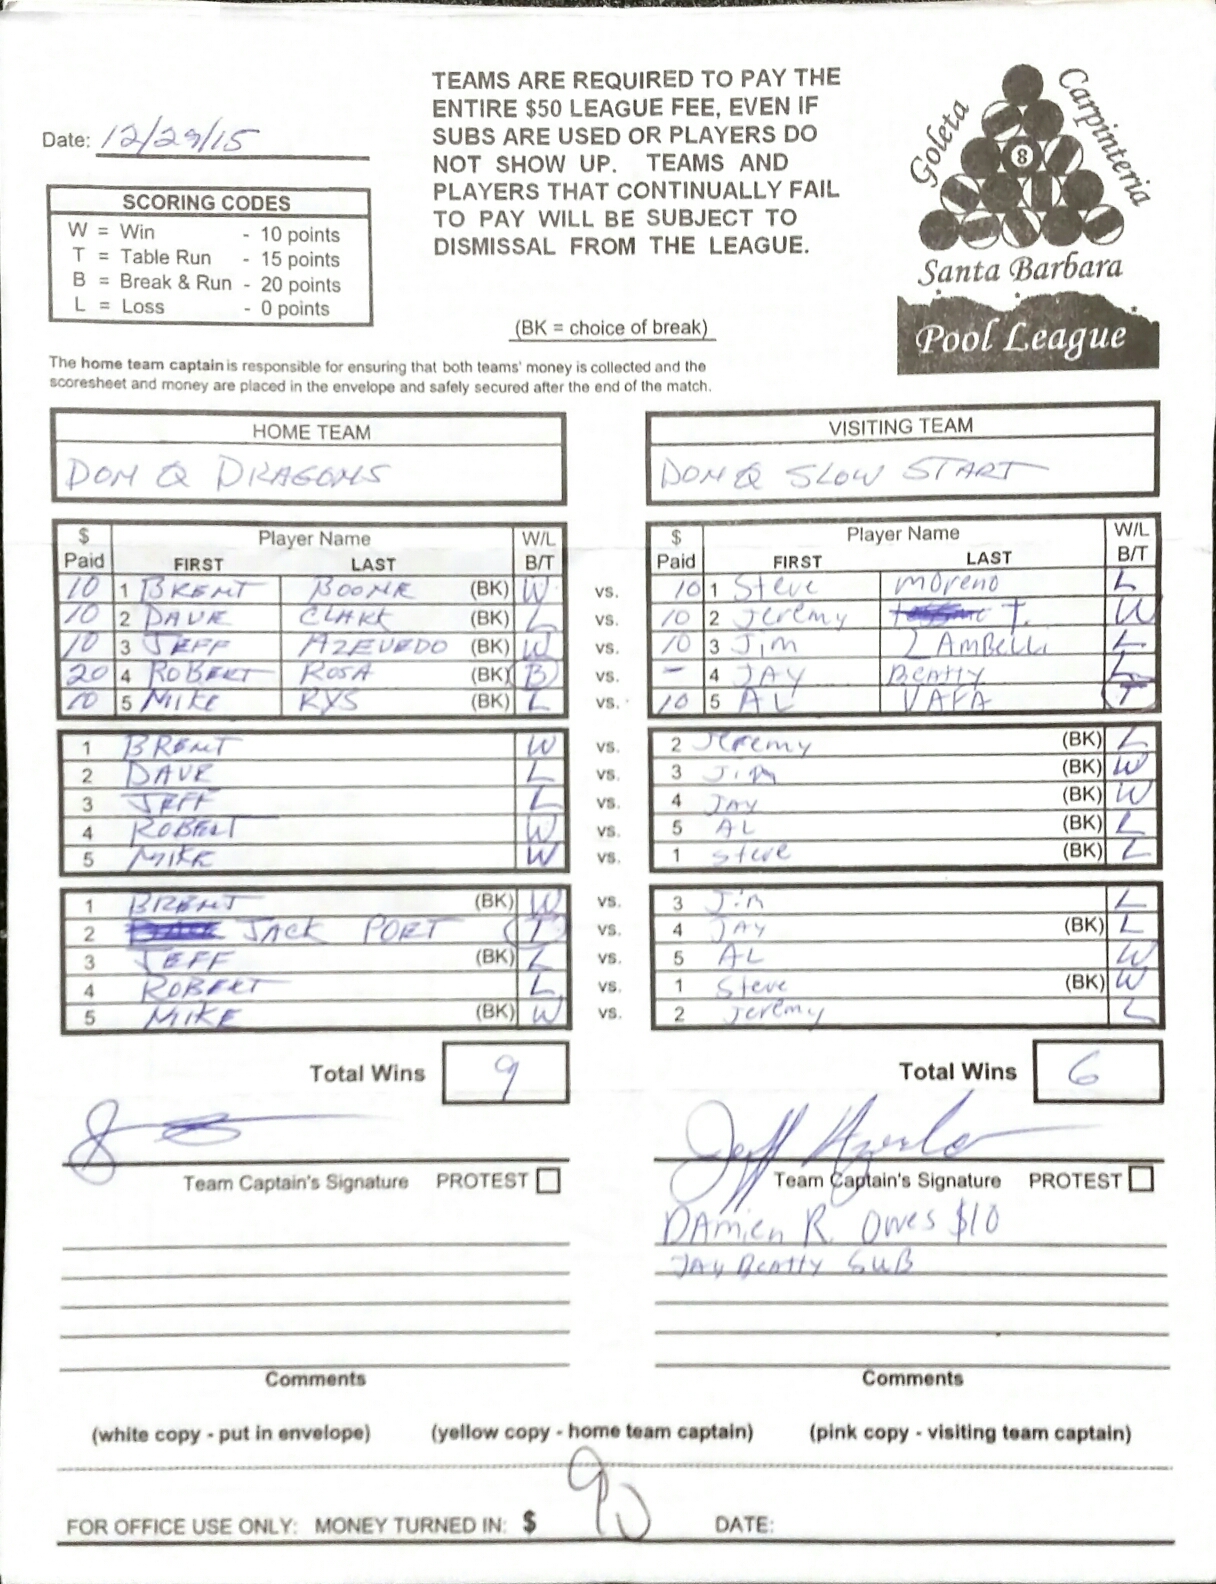 TEAMS ARE REQUIRED TO PAY THE
ENTIRE $50 LEAGUE FEE, EVEN IF
SUBS ARE USED OR PLAYERS DO
NOT SHOW UP. TEAMS AND
PLAYERS THAT CONTINUALLY FAIL
TO PAY WILL BE SUBJECT TO
DISMISSAL FROM THE LEAGUE.
Date: 12/29/15
SCORING CODES
W = Win - 10 points
T = Table Run - 15 points
B = Break & Run - 20 points
L = Loss - 0 points
(BK = choice of break)
Goleta
Carpinteria
8
Santa Barbara
Pool League
The home team captain is responsible for ensuring that both teams' money is collected and the
scoresheet and money are placed in the envelope and safely secured after the end of the match.
HOME TEAM VISITING TEAM
DON Q DRAGONS DON Q SLOW START
$ Player Name W/L $ Player Name W/L
Paid FIRST LAST B/T Paid FIRST LAST B/T
10 1 BRENT BOONE (BK) W vs. 10 1 Steve Moreno L
10 2 DAVE CLARK (BK) L vs. 10 2 Jeremy T. W
10 3 JEFF AZEVEDO (BK) W vs. 10 3 Jim ZAMBELLI L
20 4 ROBERT ROSA (BK) B vs. - 4 JAY BEATTY L
10 5 MIKE RYS (BK) L vs. 10 5 AL VAFA T
1 BRENT W vs. 2 Jeremy (BK) L
2 DAVE L vs. 3 Jim (BK) W
3 JEFF L vs. 4 JAY (BK) W
4 ROBERT W vs. 5 AL (BK) L
5 MIKE W vs. 1 Steve (BK) L
1 BRENT (BK) W vs. 3 Jim L
2 JACK PORT T vs. 4 JAY (BK) L
3 JEFF (BK) L vs. 5 AL W
4 ROBERT L vs. 1 Steve (BK) W
5 MIKE (BK) W vs. 2 Jeremy L
Total Wins 9 Total Wins 6
Jeff Azevedo
Team Captain's Signature PROTEST Team Captain's Signature PROTEST
DAmien R. Owes $10
JAY BEATTY SUB
Comments Comments
(white copy - put in envelope) (yellow copy - home team captain) (pink copy - visiting team captain)
FOR OFFICE USE ONLY: MONEY TURNED IN: $ 90 DATE: